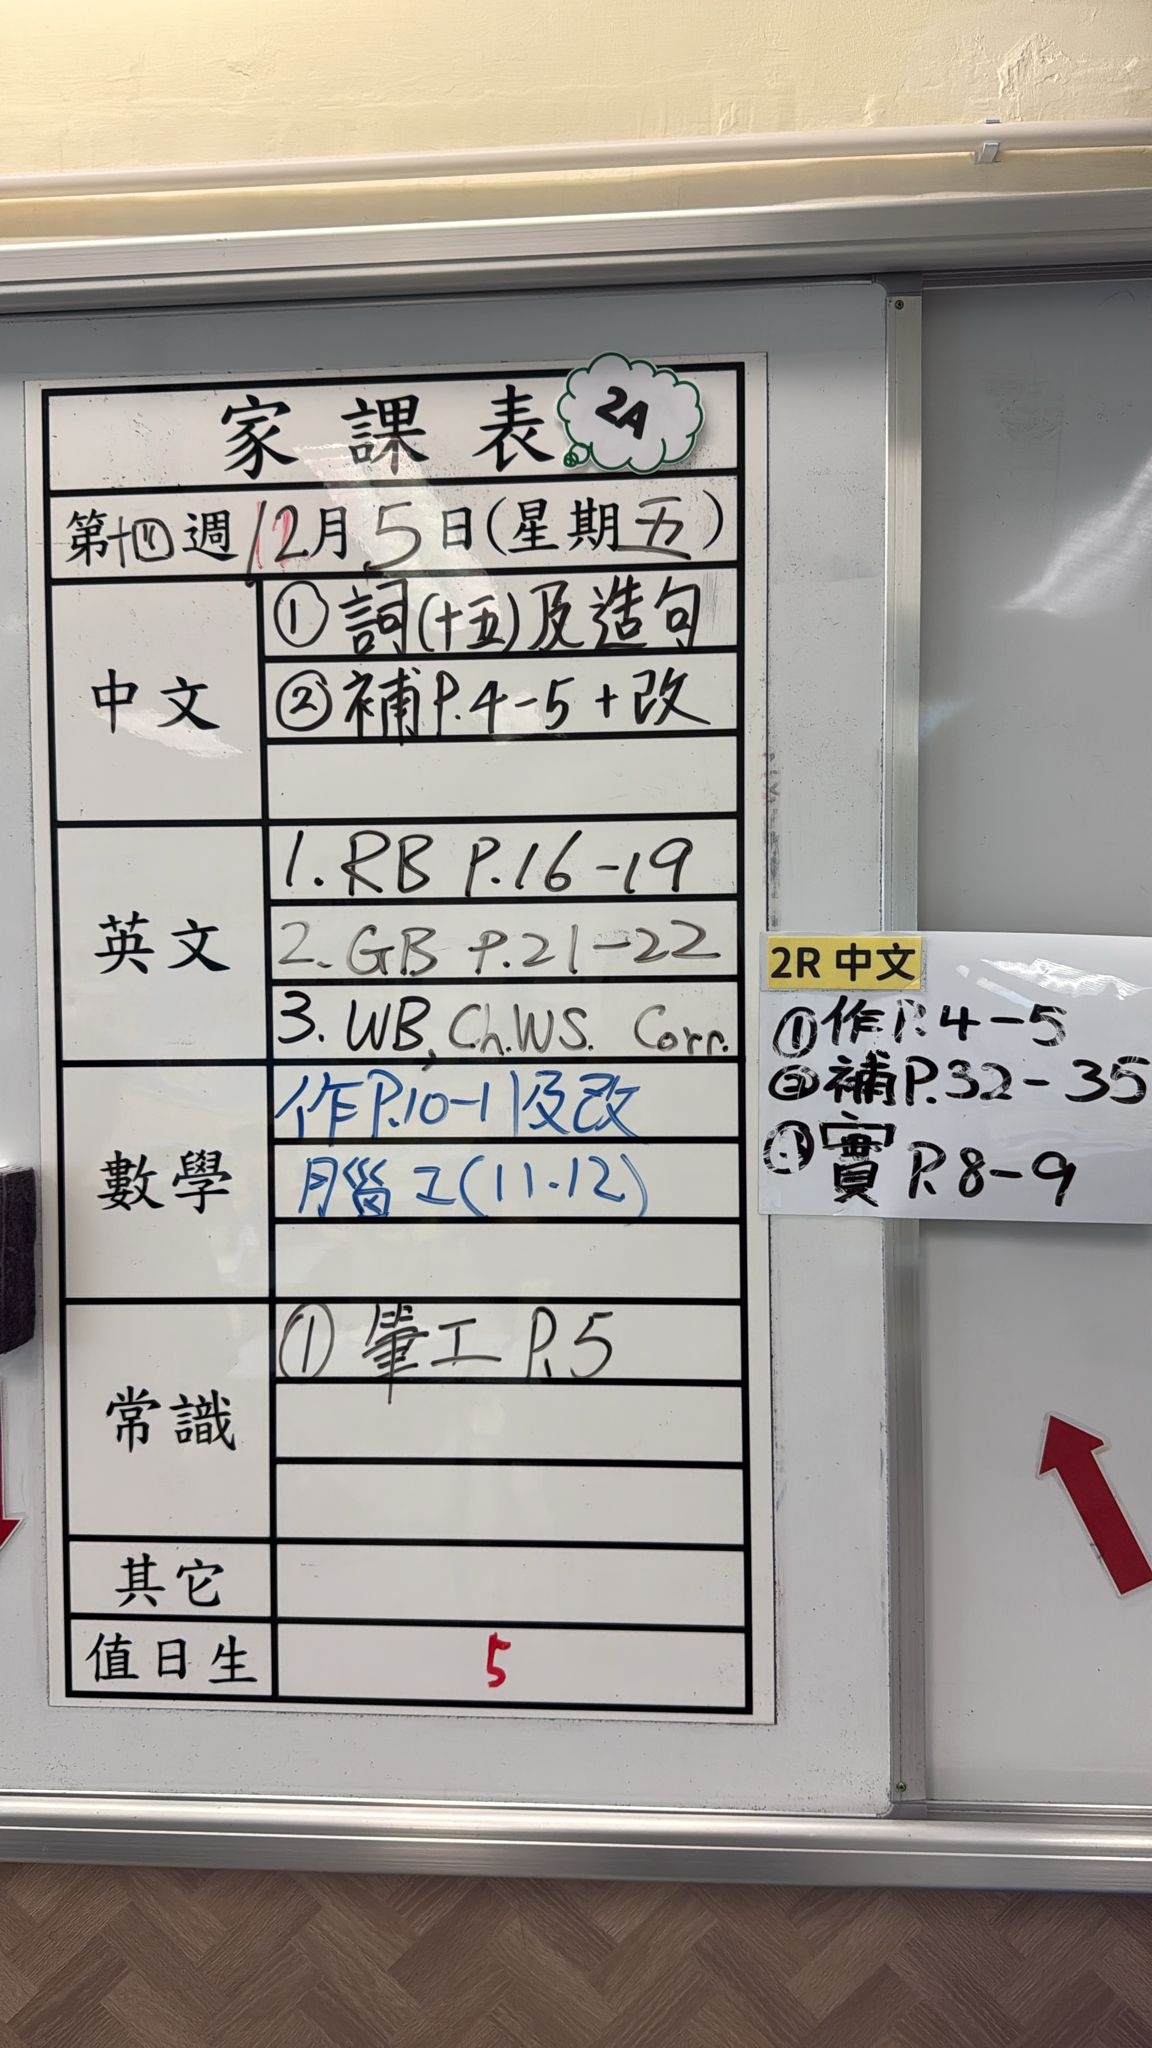 家課表
2A
第十四週12月5日(星期五)
中文
① 詞(十五)及造句
② 補P.4-5+改
英文
1. RB P.16-19
2. GB P.21-22
3. WB, Ch.WS. Corr.
數學
作P.10-11及改
腦工(11.12)
常識
① 筆工 P.5
其它
值日生
5
2R 中文
①作P.4-5
②補P.32-35
③實P.8-9